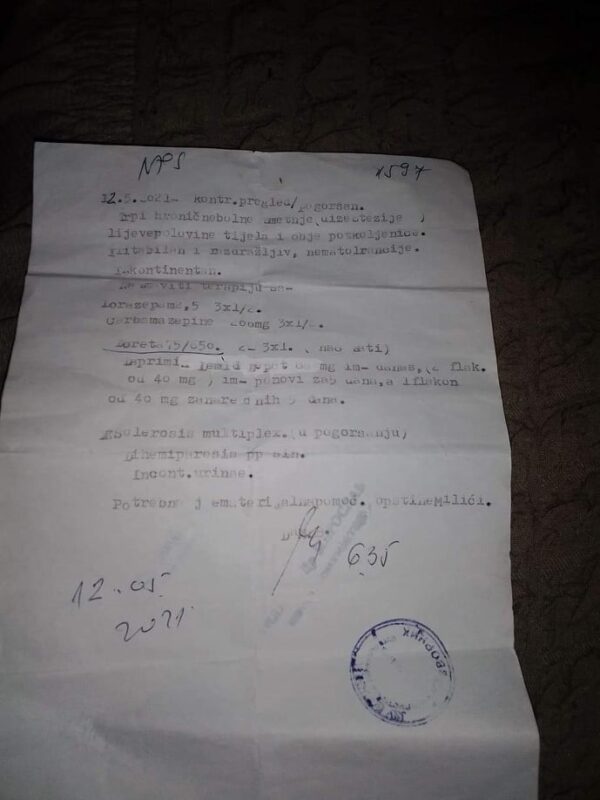 NPS 1597
12.5.2021- kontr.pregled/pogorsan.
Trpi hroničnebolne smetnje(dizestezije )
lijevepolovine tijela i obje potkoljenice.
iritabilan i razdražljiv, nematolrancije.
Inkontinentan.
Nastaviti terapiju sa-
Lorazepam2,5 3x1/2.
Carbamazepine 200mg 3x1/2.
Zoreta75/650. 2- 3x1. (na8 sati)
Zaprimi- opet 80 mg im- danas,(2 flak.
od 40 mg ) im- ponovi za5 dana,a 1flakon
od 40 mg zanarednih 5 dana.
Sclerosis multiplex.(u pogorsanju)
Dihemiparesis pp sin.
Incont.urinae.
Potrebna j ematerijalnapomoć. opstineMilići.
635
12.05
2021
ЗВОРНИК